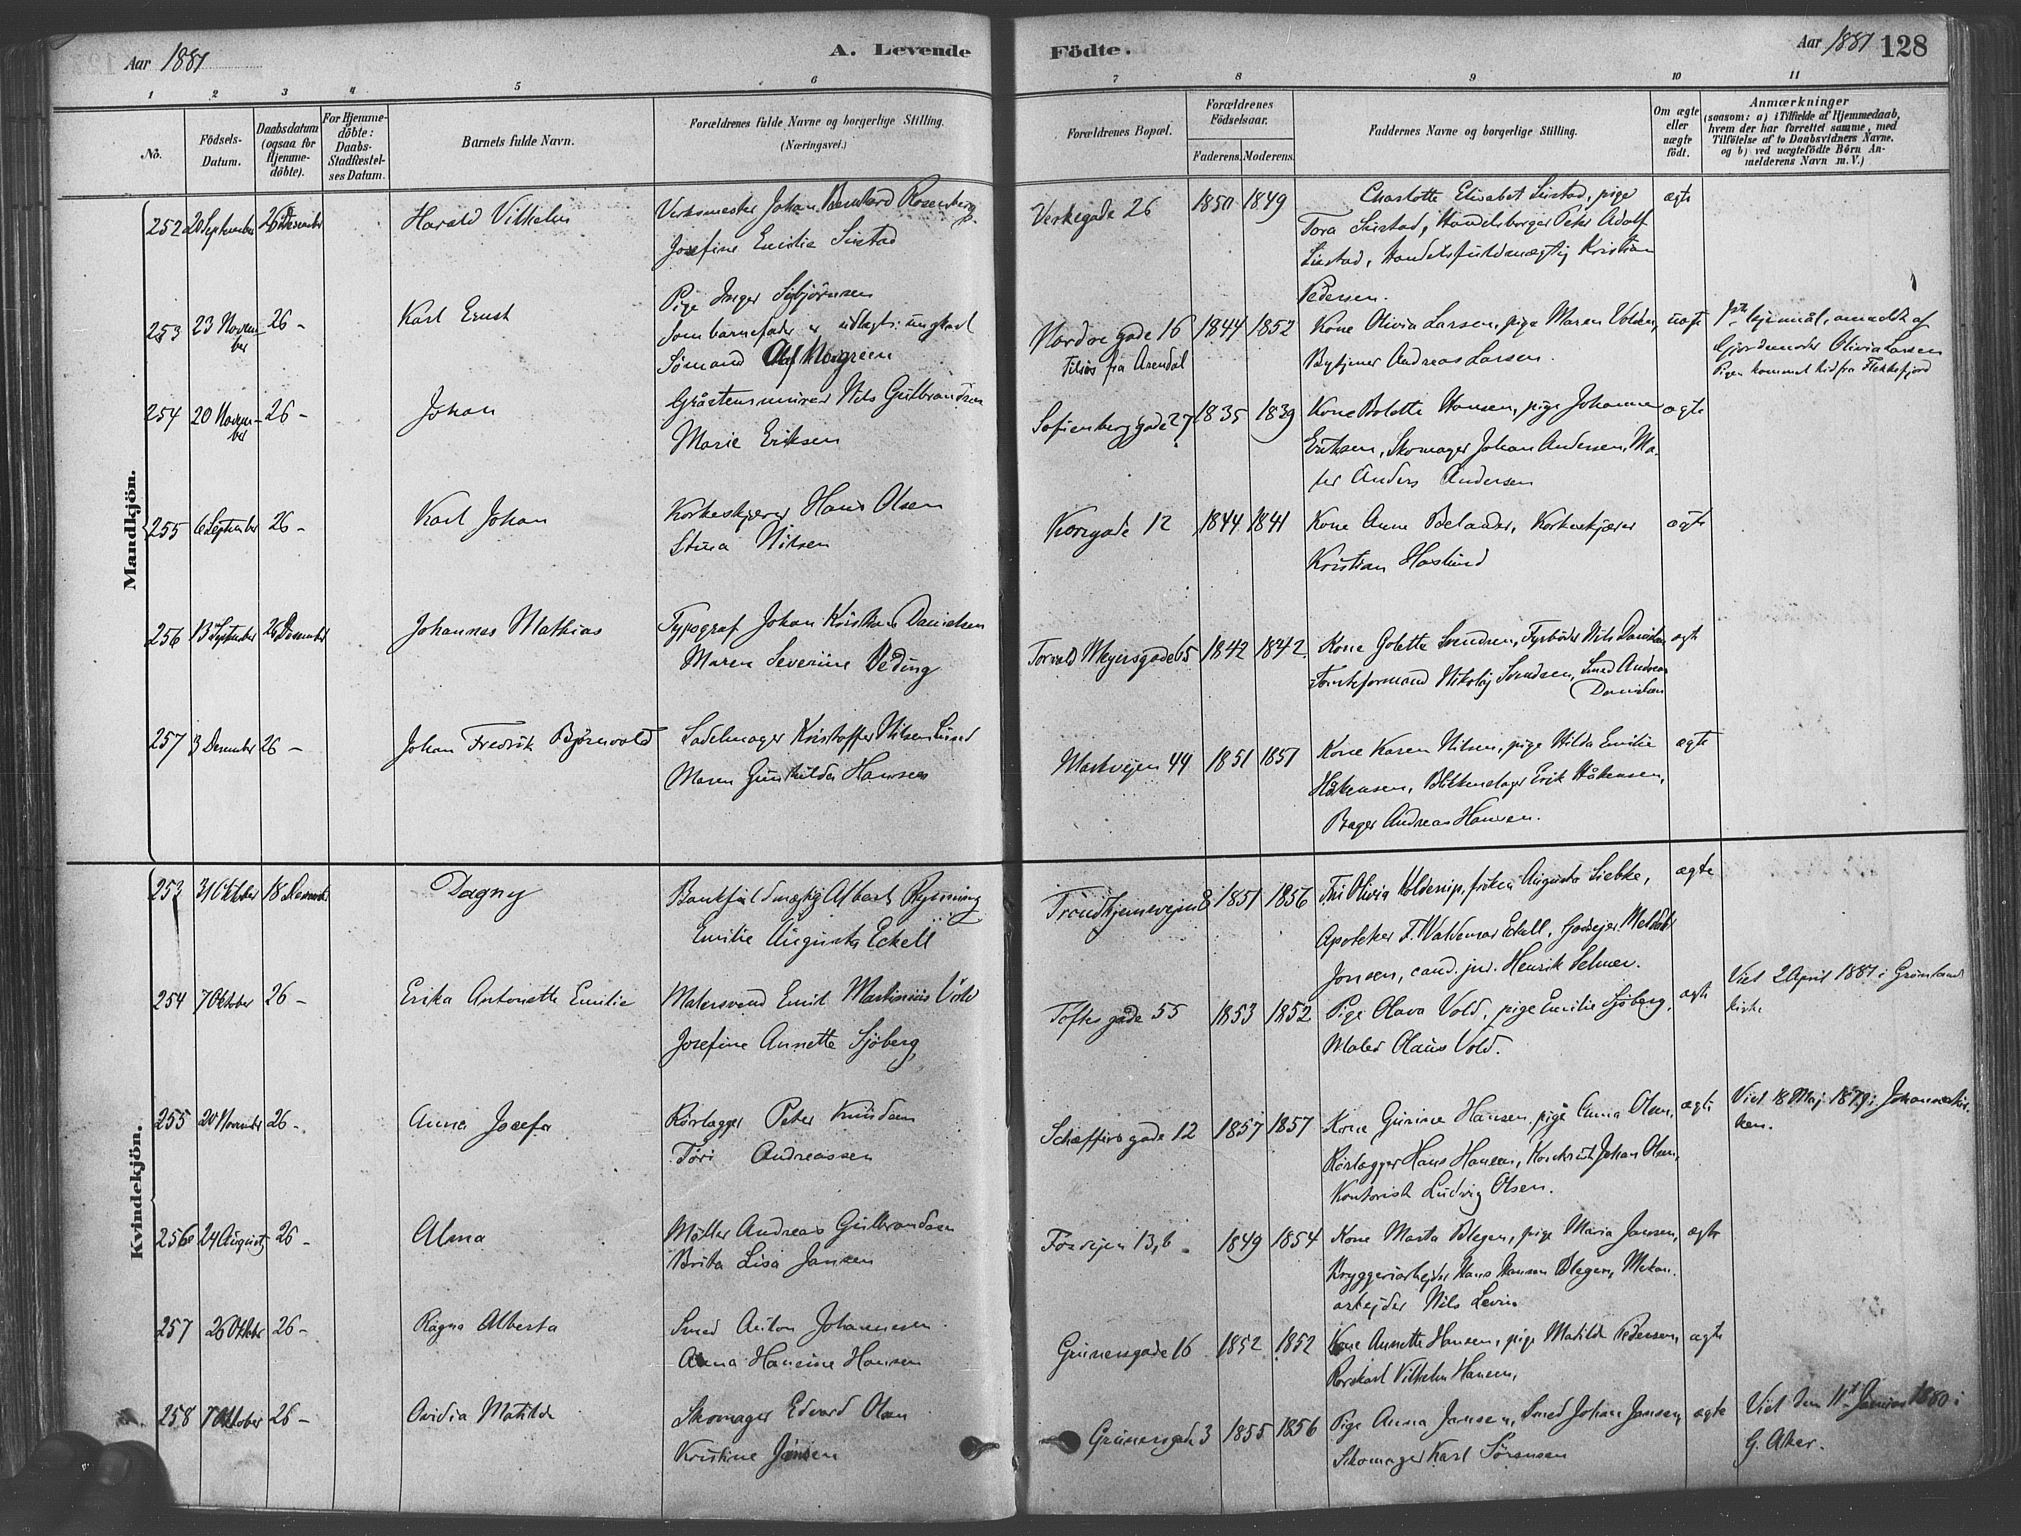 Aar 1881
A. Levende
Födte.
Aar 1881 128
1 2 3 4 5 6 7 8 9 10 11
No.
Födsels-
Datum.
Daabsdatum
(ogsaa for
Hjemme-
döbte).
For Hjemme-
döbte:
Daabs-
Stadfæstel-
ses Datum.
Barnets fulde Navn.
Forældrenes fulde Navne og borgerlige Stilling.
(Næringsvei.)
Forældrenes Bopæl.
Forældrenes
Födselsaar.
Faderens. Moderens.
Faddernes Navne og borgerlige Stilling.
Om ægte
eller
uægte
födt.
Anmærkninger
(saasom: a) i Tilfælde af Hjemmedaab,
hvem der har forrettet samme, med
Tilföielse af to Daabsvidners Navne.
og b) ved uægtefödte Börn An-
melderens Navn m. V.)
Mandkjön.
252 20 September 26 Desember
Harald Vilhelm
Verksmester Johan Bernhard Rosenberg
Josefine Emilie Sustad
Verksgade 26
1850 1849
Charlotte Elisabet Sustad, pige
Tora Sustad, Handelsborger Peter Adolf
Sustad, Handelsfuldmægtig Kristian
Pedersen.
ægte
253 23 Novem-
ber
26 -
Karl Ernst
Pige Inger Sigbjørnsen
som barnefader er udlagt: ungkarl
Sømand Olaf
Nordre gade 16
fra Arendal
1844 1852
Kone Olivia Larsen, pige Maren Volden,
Bytjener Andreas Larsen.
uægte
lejermål, anmeldt af
Gjordemoder Olivia Larsen
Pigen kommet hid fra Flekkefjord
254 20 Novem-
ber
26 -
Johan
Gråstensmurer Nils Gulbrandsen
Marie Eriksen
Sofienberggade 27
1835 1839
Kone Bolette Hansen, pige Johanne
Eriksen, Skomager Johan Andersen, Ma-
ler Anders Andersen
ægte
255 6 September 26 -
Karl Johan
Korkeskjærer Hans Olsen
Stina Nilsen
Korsgade 12
1844 1841
Kone Anne Belander, Korkeskjærer
Kristian Haslund
ægte
256 13 September 26 Desember
Johannes Mathias
Typograf Johan Kristian Danielsen
Maren Severine Veding
Torvald Meyersgade 65
1842 1842
Kone Golette Svendsen, Fyrbøder Nils Danielsen
Nikolaj Svendsen, Smed Andreas
Danielsen
ægte
257 3 Desember 26 -
Johan Fredrik Bjørnvald
Sadelmager Kristoffer Nilsen Lund
Maren Gunhilda Hansen
Markvejen 44
1851 1851
Kone Karen Nilsen, pige Hilda Emilie
Håkensen, Blikkenslager Erik Håkensen,
Bager Andreas Hansen.
ægte
Kvindekjön.
253 31 Oktober 18 Desember
Dagny
Bankfuldmægtig Albert Rynning
Emilie Augusta Eckell
Trondhjemsvejen 8
1851 1856
Fru Olivia Kolderup, frøken Augusta Siebke,
Apoteker F. Valdemar Eckell, Godsejer
Jonsen, cand. jur. Henrik Selmer.
ægte
254 7 Oktober 26 -
Erika Antonette Emilie
Malersvend Emil Martinius Vold
Josefine Annette Sjøberg
Toftes gade 55
1853 1852
Pige Olava Vold, pige Emilie Sjøberg,
Maler Olaus Vold.
ægte
Viet 2 April 1881 i Grønlands
kirke
255 20 November 26 -
Anna Josefa
Rørlægger Peter Knudsen
Andreassen
Schæffers gade 12
1857 1857
Kone Gunine Hansen, pige Anna Olsen,
Rørlægger Hans Hansen, Johan Olsen,
Kontorist Ludvig Olsen.
ægte
Viet 18 Maj 1879 i Johanneskir-
ken.
256 24 August 26 -
Alma
Møller Andreas Gulbrandsen
Brita Lisa Jansen
Fossvejen 13, b
1849 1854
Kone Marta Blegen, pige Maria Jansen,
Bryggeriarbejder Hans Hansen Blegen, Mekan.
arbejder Nils Levin
ægte
257 26 Oktober 26 -
Ragna Alberta
Smed Anton Johannesen
Anna Hansine Hansen
Grünersgade 16
1852 1852
Kone Annette Hansen, pige Matilde Pedersen,
Vilhelm Hansen,
ægte
258 7 Oktober 26 -
Ovidia Matilde
Skomager Edvard Olsen
Kristine Jensen
Grünersgade 3
1855 1856
Pige Anna Jansen, Smed Johan Jansen,
Skomager Karl Sørensen
ægte
Viet den 11te Januar 1880 i
G. Aker.